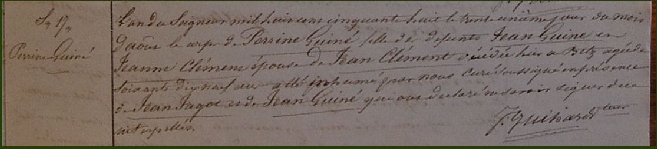 Sre
Perrine Guiné
L'an du Seigneur mil huit cent cinquante huit le trente unième jour du mois
D'août le corps de Perrine Guiné fille de défunts Jean Guiné et
Jeanne Clément épouse de Jean Clément décédée hier à agée de
soixante dix neuf ans a été inhumé par nous Curé soussigné en présence
de Jean Pagot et de Jean Guiné qui ont déclaré ne savoir signer de ce
interpellés.
J. Guihard